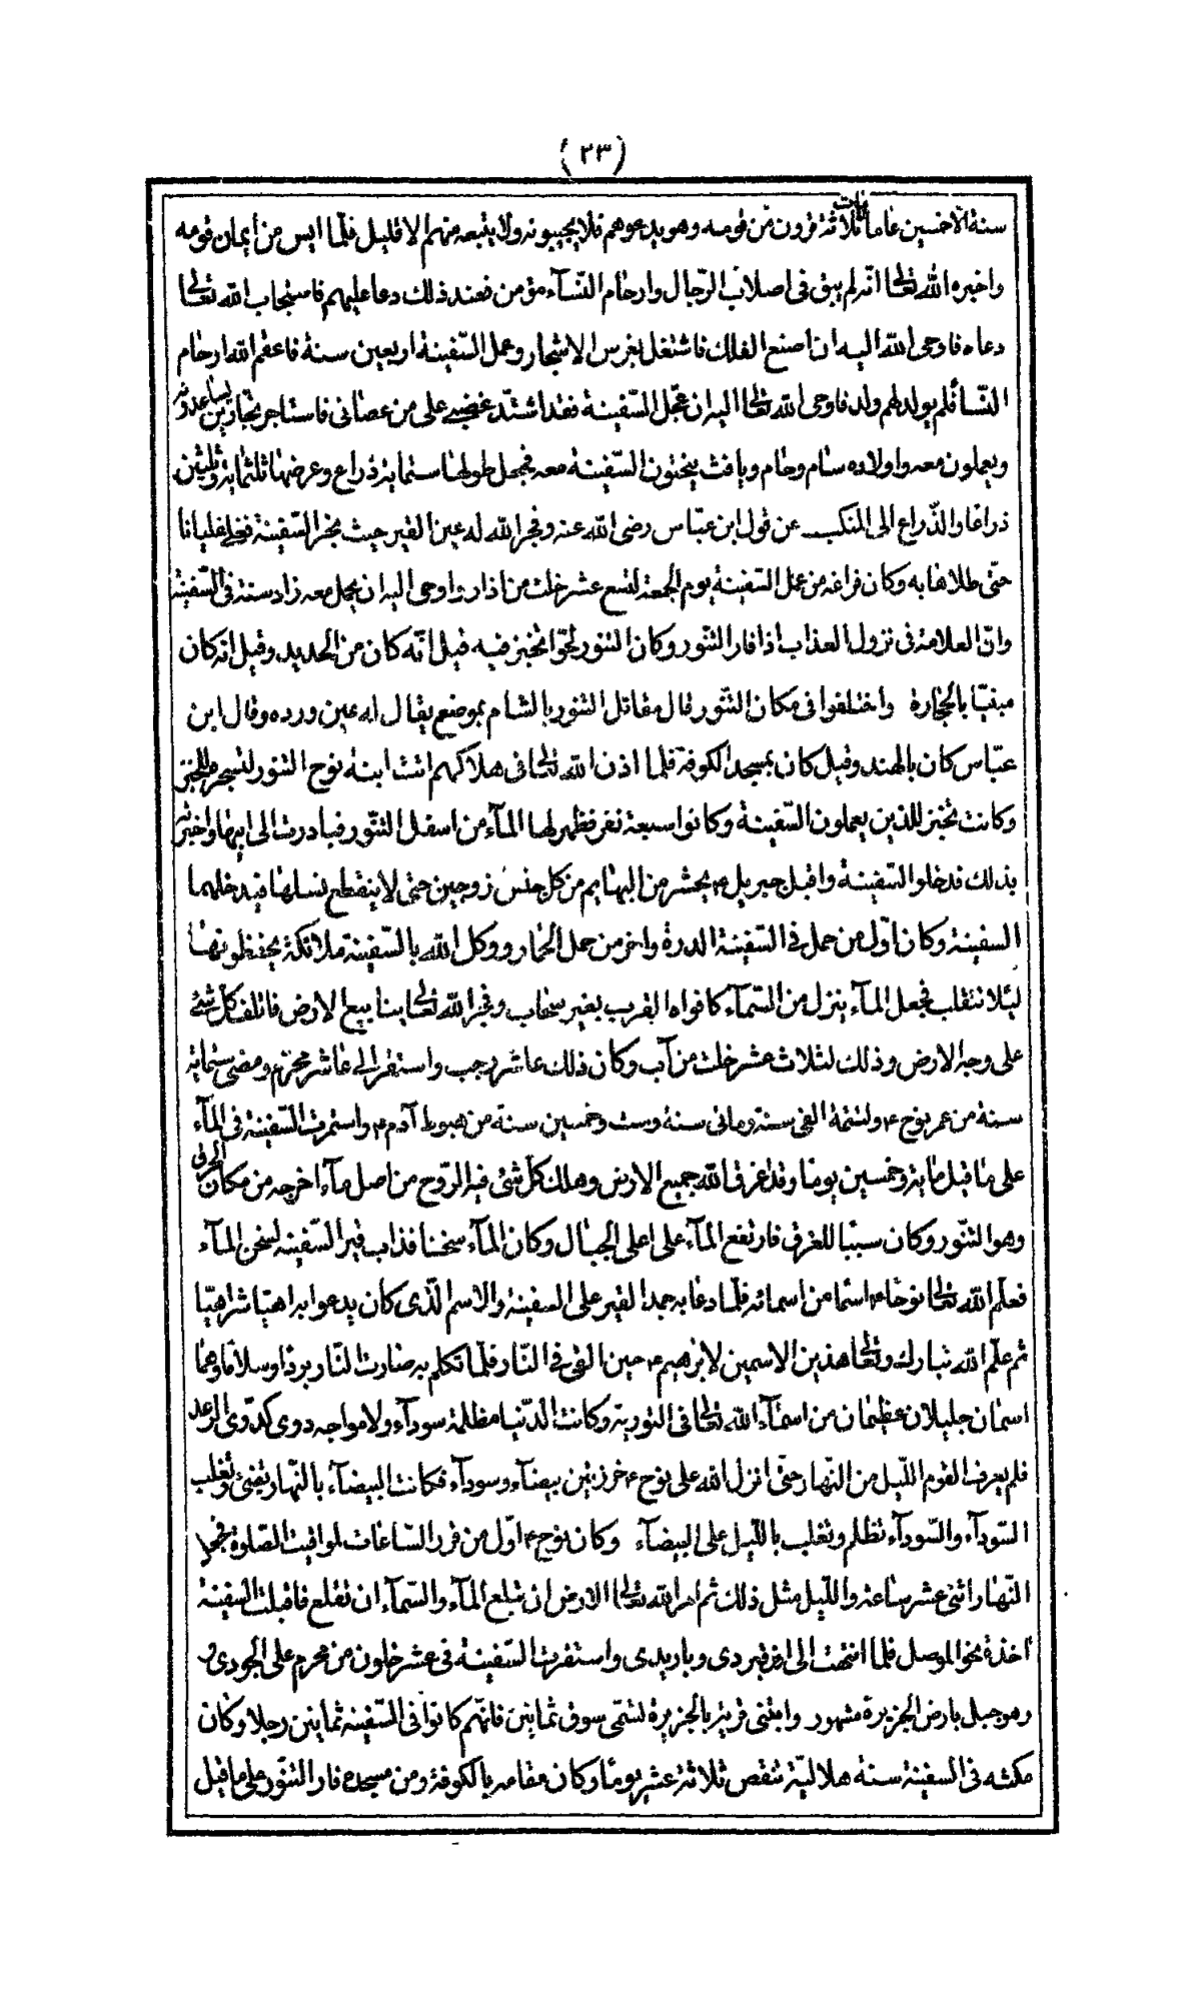 (٢٣)
سنة الا خمسين عاما ثلاثة قرون من قومه وهو يدعوهم فلا يجيبونه ولا يتبعه منهم الا قليل فلما ايس من أيمان قومه
واخبره الله تعالى انه لم يبق فى اصلاب الرّجال وارحام النّسآء مؤمن فعند ذلك دعا عليهم فاستجاب الله تعالى
دعاه فاوحى الله اليه ان اصنع الفلك فاشتغل بغرس الاشجار وعمل السّفينة اربعين سنة فاعقم الله ارحام
النّسا فلم يولد لهم ولد فاوحى الله تعالى اليه ان عجّل السّفينة فقد اشتدّ غضبى على من عصانى فاستاجر نجارين يساعدونه
ويعملون معه واولاده سام وحام ويافث ينحتون السّفينة معه فجعل طولها ستماية ذراع وعرضها ثلثماية وثلثين
ذراعا والذّراع الى المنكب عن قول ابن عبّاس رضى الله عنه وفجر الله له عين القير حيث نجر السّفينة تغلى غليانا
حتّى طلاها به وكان فراغه من عمل السّفينة يوم الجمعة لتسع عشر خلت من اذار واوحى اليه ان يحمل معه زاد سنة فى السّفينة
وانّ العلامة فى نزول العذاب اذا فار التّنور وكان التنور لحوا تخبز فيه قيل انّه كان من الحديد وقيل انه كان
مبنيّا بالحجارة واختلفوا فى مكان التّنور قال مقاتل التنور بالشام بموضع يقال له عين ورده وقال ابن
عبّاس كان بالهند وقيل كان بمسجد الكوفة فلما اذن الله تعالى فى هلاكهم اتت ابنة نوح التنور لتسجره للخبز
وكانت تخبز للذين يعملون السّفينة وكانوا سبعة نفر فظهر لها المآء من اسفل التنّور فبادرت الى ابيها واخبرته
بذلك فدخلوا السّفينة واقبل جبريل ع يحشر من البهايم من كل جنس زوجين حتى لا ينقطع نسلها فيدخلهما
السفينة وكان اوّل من حمل فى السّفينة الدرة واخر من حمل الحمار ووكل الله بالسّفينة ملائكة يحفظونها
لئلا تنقلب فجعل المآء ينزل من السّمآء كافواه القرب بغير سحاب وفجر الله تعالى ينابيع الارض فاتلف كل شئ
على وجه الارض وذلك لثلاث عشر خلت من آب وكان ذلك عاشر رجب واستقر الى عاشر محرّم ومضى ستماية
سنة من عمر نوح ع ولتتمة الفى سنة ومائى سنة وست وخمسين سنة من هبوط آدم ع واستمرت السّفينة فى المآء
على ما قيل ماية وخمسين يوما وقد اغرق الله جميع الارض وهلك كل شئ فيه الرّوح من اصل مآء اخرجه من مكان الحرق
وهو التنّور وكان سببا للغرق فارتفع المآء على اعلى الجبال وكان المآء سخنا فذاب قير السّفينه لسخن المآء
فعلّم الله تعالى نوحا ع اسما من اسمائه فلمّا دعا به جمد القير على السفينة والاسم الّذى كان يدعوا به اهيا شراهيّا
ثم علّم الله تبارك وتعالى هذين الاسمين لابرهيم ع حين القى فى النّار فلمّا تكلم به صارت النّار بردا وسلاما وهما
اسمان جليلان عظيمان من اسمآء الله تعالى فى التورية وكانت الدّنيا مظلمة سودآء ولامواجه دوى كدوّى الرّعد
فلم يعرف القوم اللّيل من النّهار حتّى انزل الله على نوح ع خرزتين بيضآء وسودآء فكانت البيضآء بالنّهار تضئ وتغلب
السّودآء والسّودآء تظلم وتغلب باللّيل على البيضآء وكان نوح ع اوّل من قرر السّاعات لمواقيت الصّلوة فجعل
النّهار اثنى عشر ساعة واللّيل مثل ذلك ثم امر الله تعالى الارض ان تبلع المآء والسّمآء ان تقلع فاقبلت السّفينة
أخذة نحو الموصل فلما انتهت الى ارض قردى وبازبدى واستقرت السّفينة فى عشر خلون من محرم على الجودى و
وهو جبل بارض الجزيرة مشهور وابتنى قرية بالجزيرة لتسمّى سوق ثمانين فانّهم كانوا فى السّفينة ثمانين رجلا وكان
مكثه فى السفينة سنة هلاليّة تنقص ثلاثة عشر يوما وكان مقامه بالكوفة ومن مسجده فار التنوّر على ما قيل